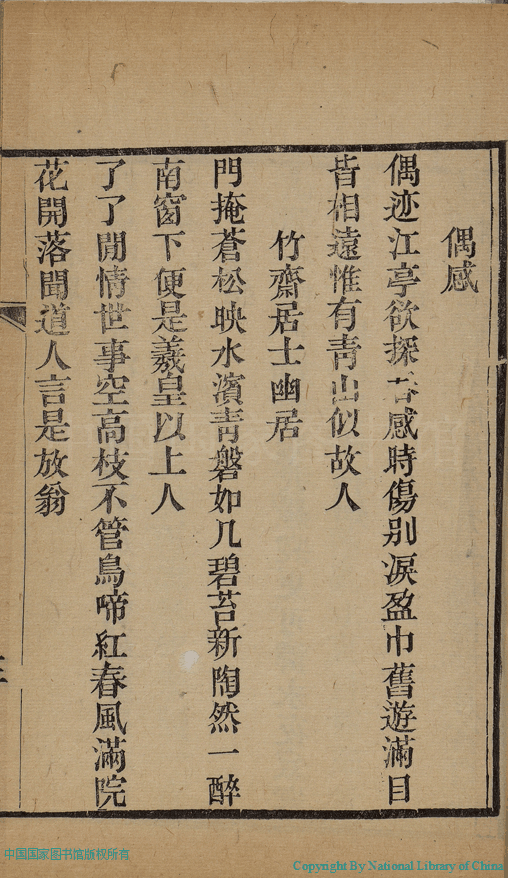 偶感
偶迹江亭欲探春感時傷別淚盈巾舊遊滿目
皆相遠惟有靑山似故人
竹齋居士幽居
門掩蒼松映水濱靑磐如几碧苔新陶然一醉
南窗下便是羲皇以上人
了了閒情世事空高枝不管鳥啼紅春風滿院
花開落聞道人言是放翁
中国国家图书馆版权所有
Copyright By National Library of China